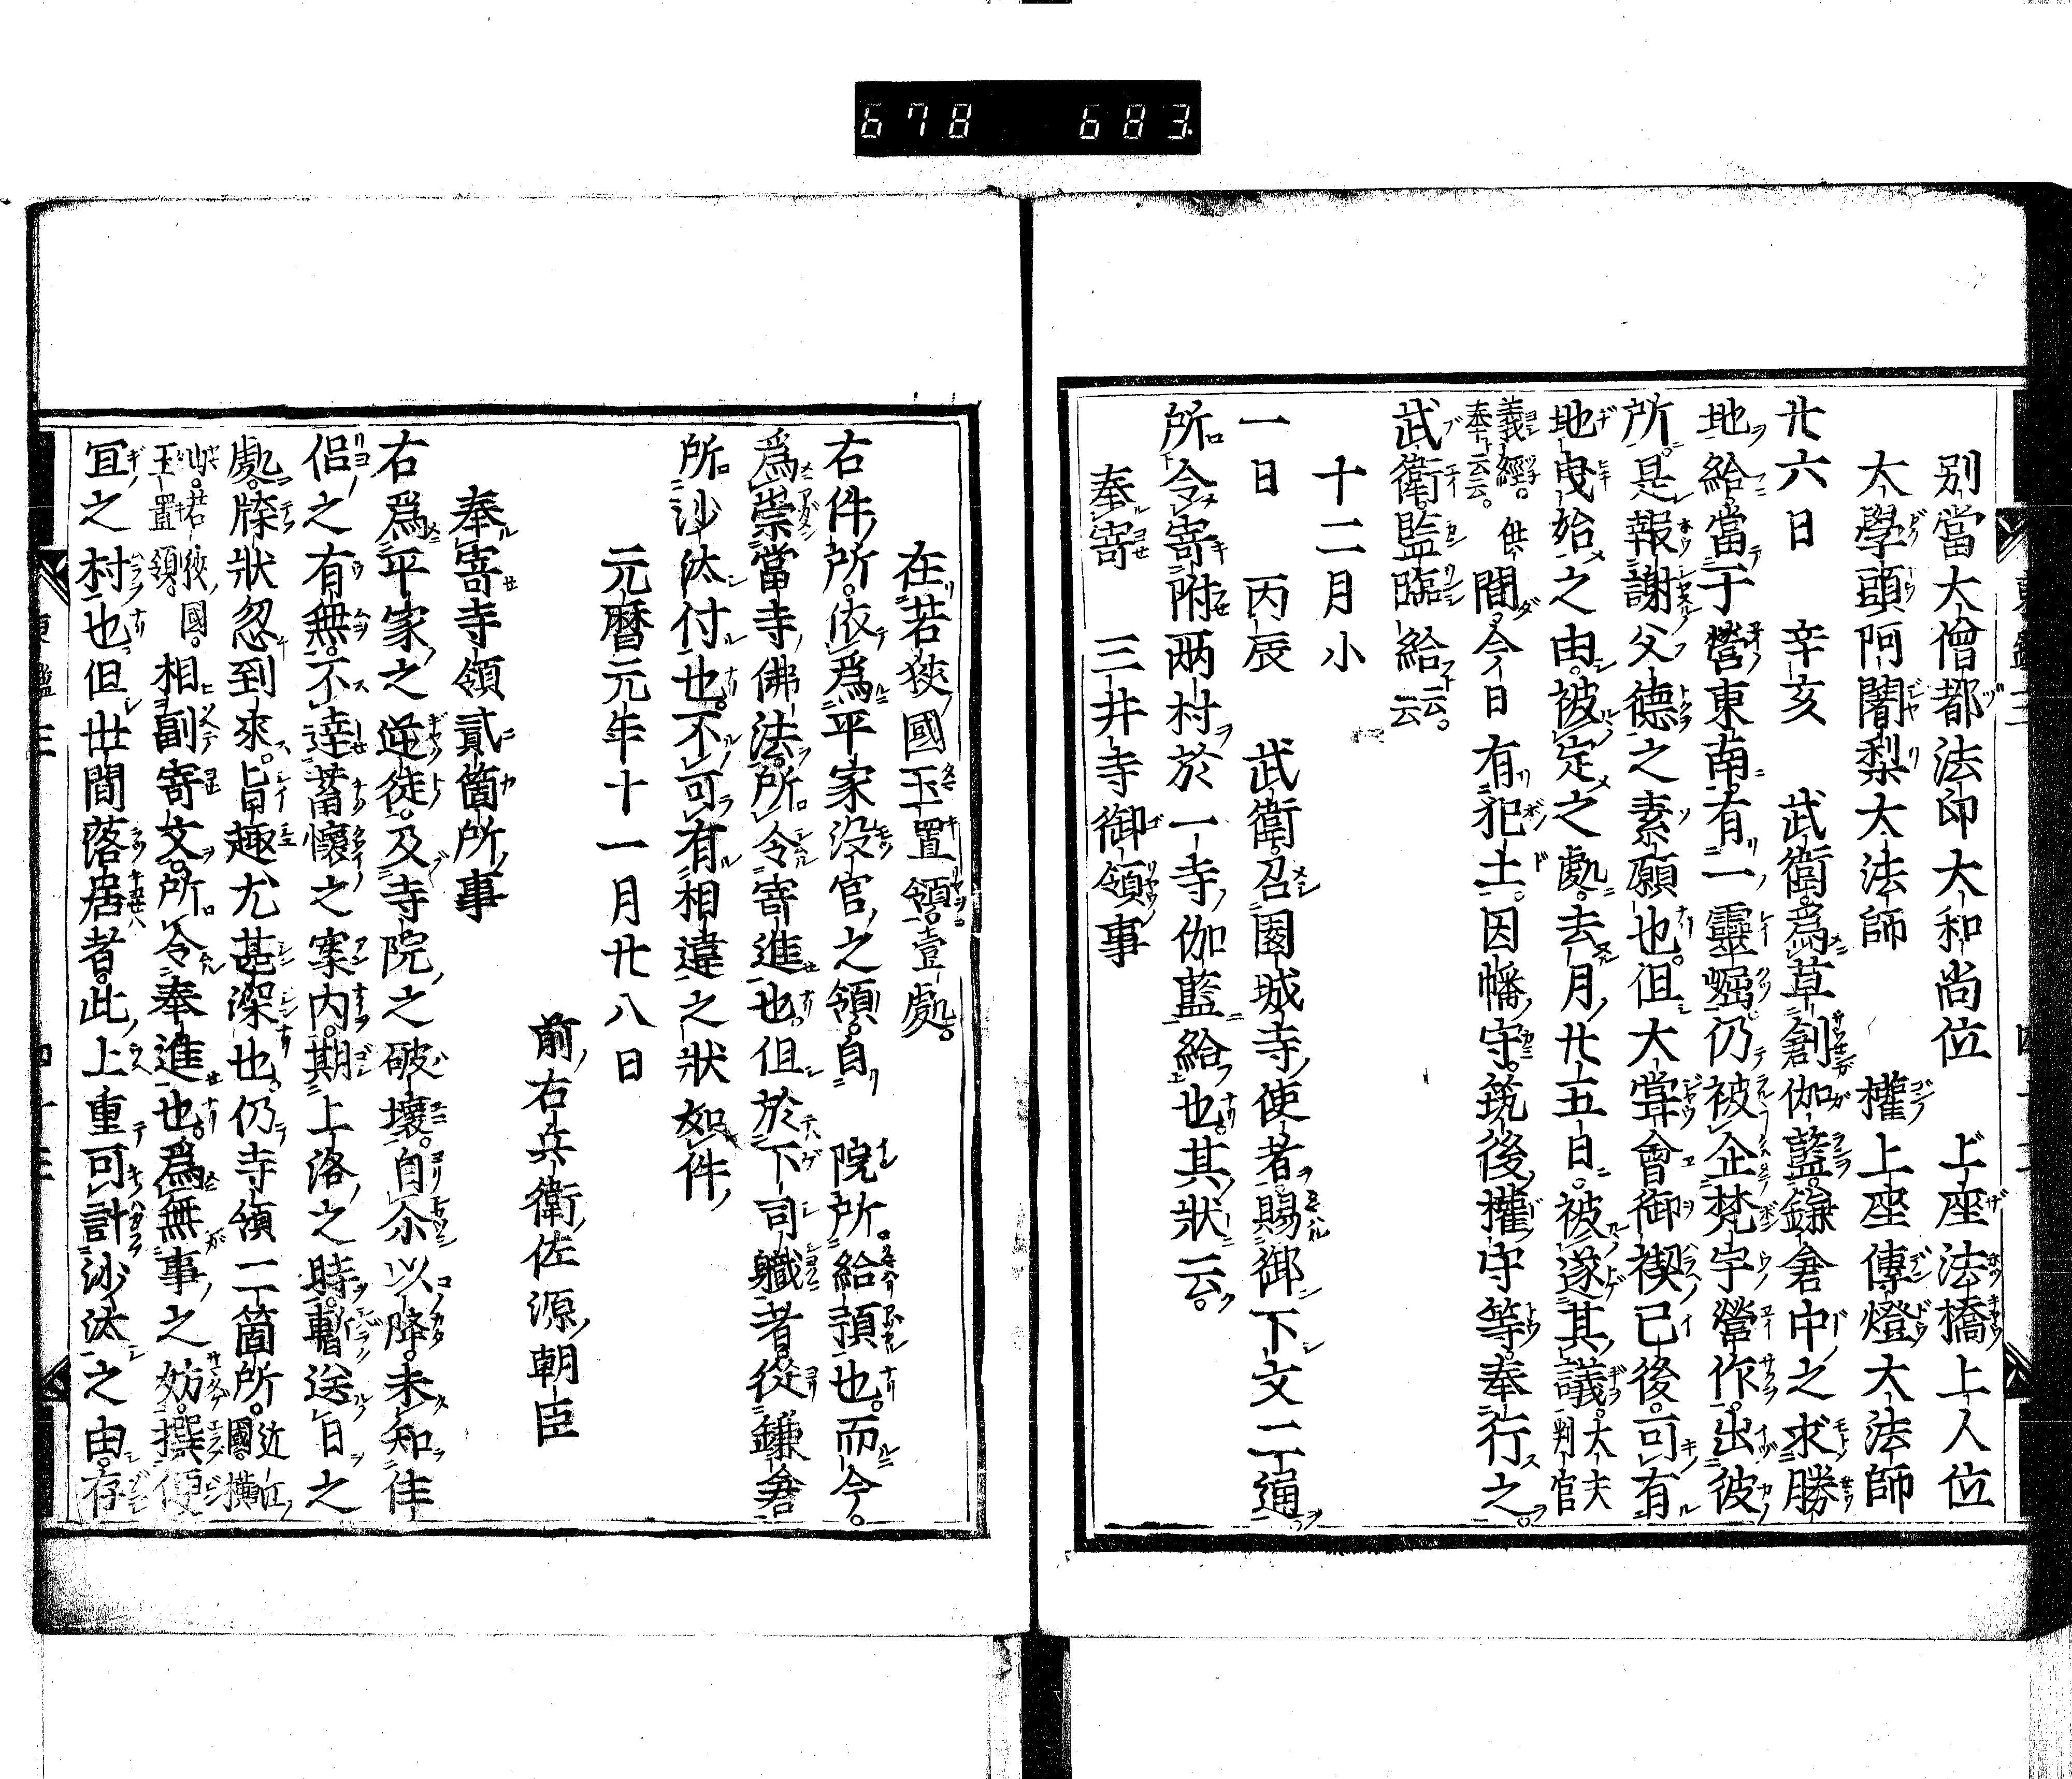 678 683
別當大僧都法印大和尚位 上座法橋上人位
大學頭阿闍梨大法師 權上座傳燈大法師
廿六日 辛亥 武衛爲草創伽藍鎌倉中之求勝
地給當于營東南有一靈崛仍被企梵宇營作出彼
所是報謝父德之素願也但大甞會御禊已後可有
地曳始之由被定之處去月廿五日被遂其議大夫判官
義經供奉云云間今日有犯土因幡守筑後權守等奉行之
武衛監臨給云云
十二月小
一日 丙辰 武衛召園城寺使者賜御下文二通
所令寄附兩村於一寺伽藍給也其狀云
奉寄 三井寺御領事
在若狹國玉置領壹處
右件所依爲平家没官之領自 院所給預也而今
爲崇當寺佛法所令寄進也但於下司職者從鎌倉
所沙汰付也不可有相違之狀如件
元曆元年十一月廿八日
前右兵衛佐源朝臣
奉寄寺領貳箇所事
右爲平家之逆徒及寺院之破壞自尒以降未知住
侶之有無不達蓄懷之案內期上洛之時暫送日之
處牒狀忽到來旨趣尤甚深也仍寺領二箇所近江國橫
山若狹國玉置領相副寄文所令奉進也爲無事之妨撰便
冝之村也但丗間落居者此上重可計沙汰之由存